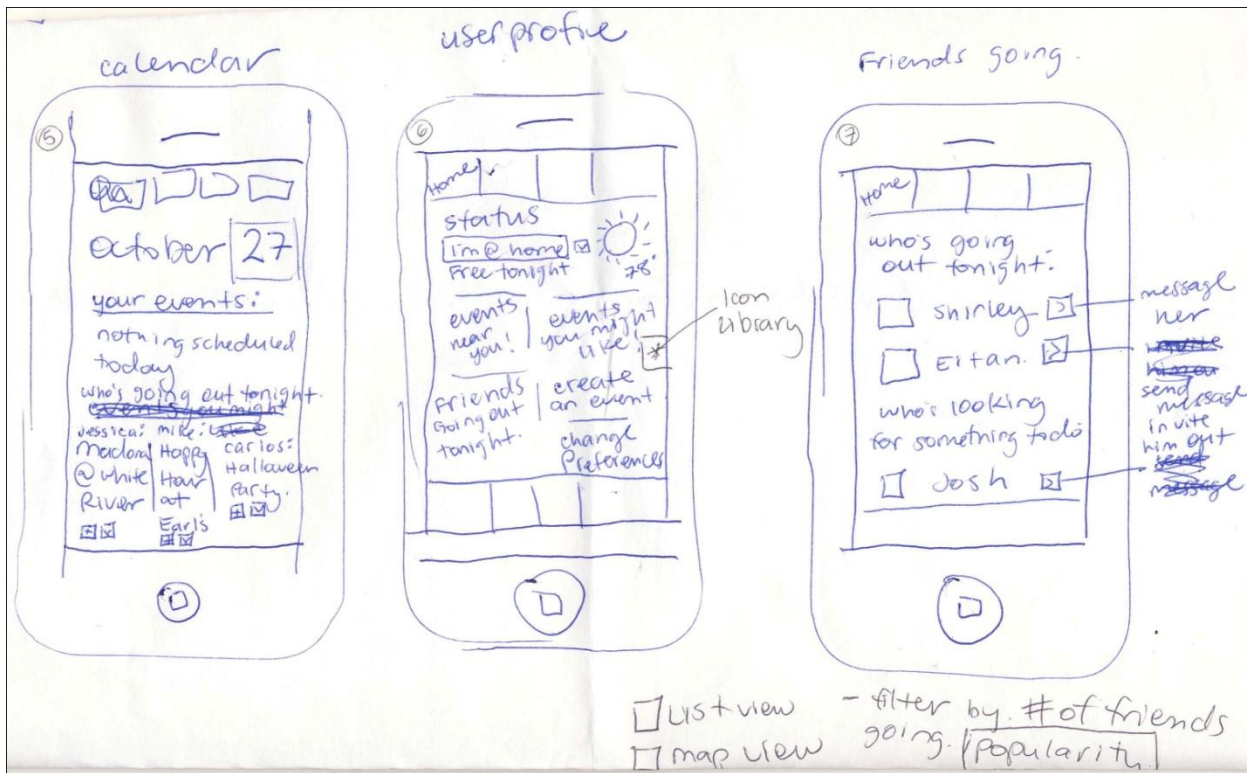 calendar
5
October 27
your events:
nothing scheduled
today
who's going out tonight.
events you might
Jessica: mike:
@ white
River
Happy
Hour
at
Earl's
carlos:
Halloween
Party.
user profile
6
Home
status
I'm @ home
Free tonight
78°
events
near
you!
events
you might
like!
Friends
Going out
tonight.
create
an event
change
Preferences
Icon
Library
Friends going.
7
Home
who's going
out tonight:
Shirley
Eitan.
who's looking
for something to do
Josh
message
her
invite
send
message
invite
him out
send
message
List view
map view
- filter by # of friends
going. popularity